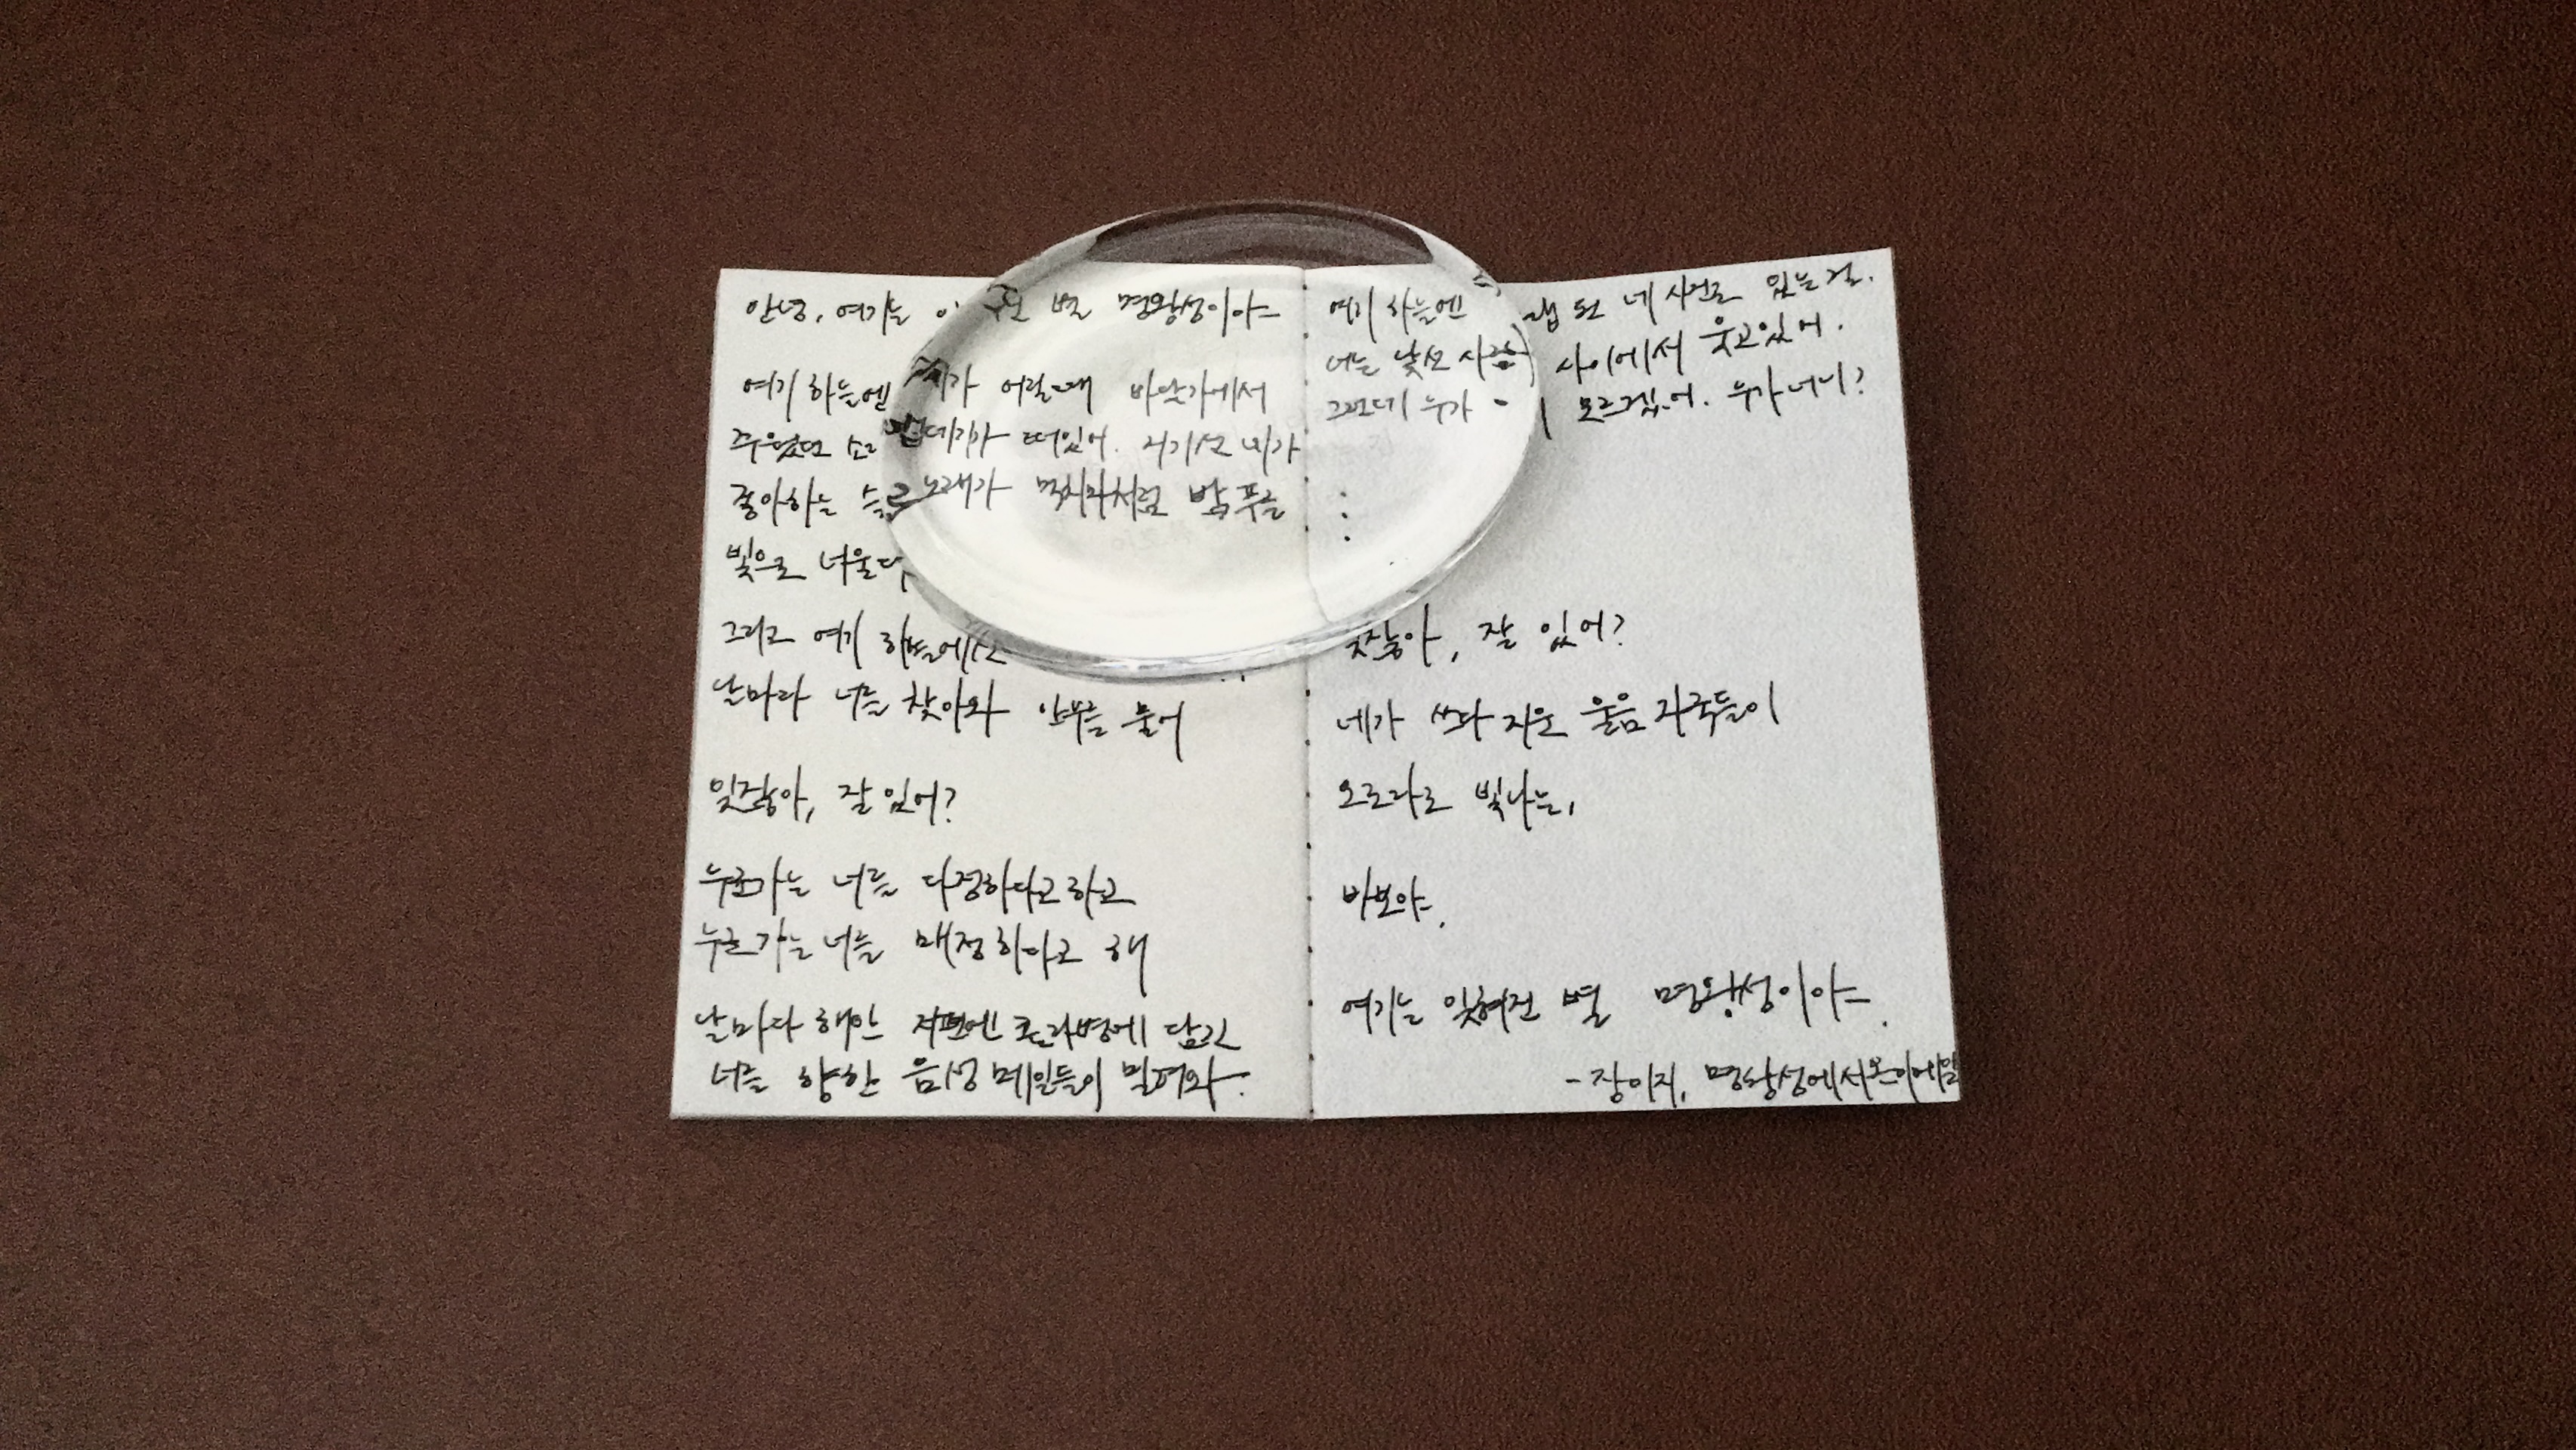 안녕, 여기는 별 명왕성이야
여기 하늘엔 어릴 때 바닷가에서
주웠던 떠있어. 거기선 네가
좋아하는 슬픈 노래가 먹치마처럼 밤 푸른
빛으로 너울대
그리고 여기 하늘에선
날마다 너를 찾아와 안부를 물어
있잖아, 잘 있어?
누군가는 너를 다정하다고 하고
누군가는 너를 매정하다고 해
날마다 해안 저편엔 콜라병에 담긴
너를 향한 음성 메일들이 밀려와.
여기 하늘엔 네 사진도 있는걸.
너는 낯선 사람들 사이에서 웃고 있어.
그런데 누가 모르겠어. 누가 너니?
있잖아, 잘 있어?
네가 쓰다 지운 울음 자국들이
오로라로 빛나는,
바보야.
여기는 잊혀진 별 명왕성이야.
- 장이지, 명왕성에서 온 이메일